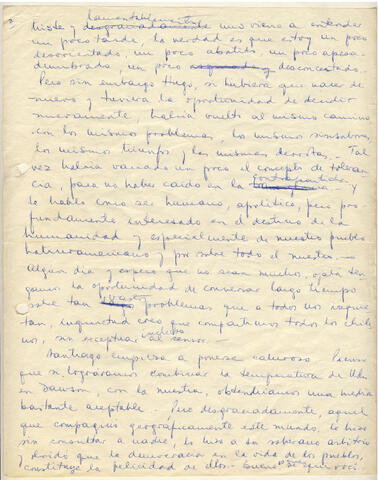 lamentablemente
triste y desgraciadamente uno viene a entender
un poco tarde la verdad es que estoy un poco
desorientado, un poco abatido, un poco apesa-
dumbrado, un poco y desconcertado.
Pero sin embargo Hugo, si hubiera que nacer de
nuevo y tuviera la oportunidad de decidir
nuevamente, habría vuelto al mismo camino
con los mismos problemas, los mismos sinsabores,
los mismos triunfos y las mismas derrotas.- Tal
vez habría variado un poco el concepto de toleran
cia, para no haber caído en la y
te hablo como ser humano, apolítico, pero pro
fundamente interesado en el destino de la
humanidad y especialmente de nuestro pueblo
latinoamericano y por sobre todo el nuestro.-
Algun día y espero que no sean muchos, ojalá ten
gamos la oportunidad de conversar largo tiempo
sobre tan problemas que a todos nos inquie
tan, inquietud creo que compartimos todos los chile
nos, sin exceptuar incluso al sensor.-
Santiago empieza a ponerse caluroso. Pienso
que si lograramos combinar la temperatura de Uds
en Dawson, con la nuestra, obtendríamos una media
bastante aceptable. Pero desgraciadamente, aquel
que compaginó geográficamente este mundo, lo hizo
sin consultar a nadie, lo hizo a su soberano arbitrio
y olvidó que la democracia en la vida de los pueblos,
constituye la felicidad de ellos.- Bueno